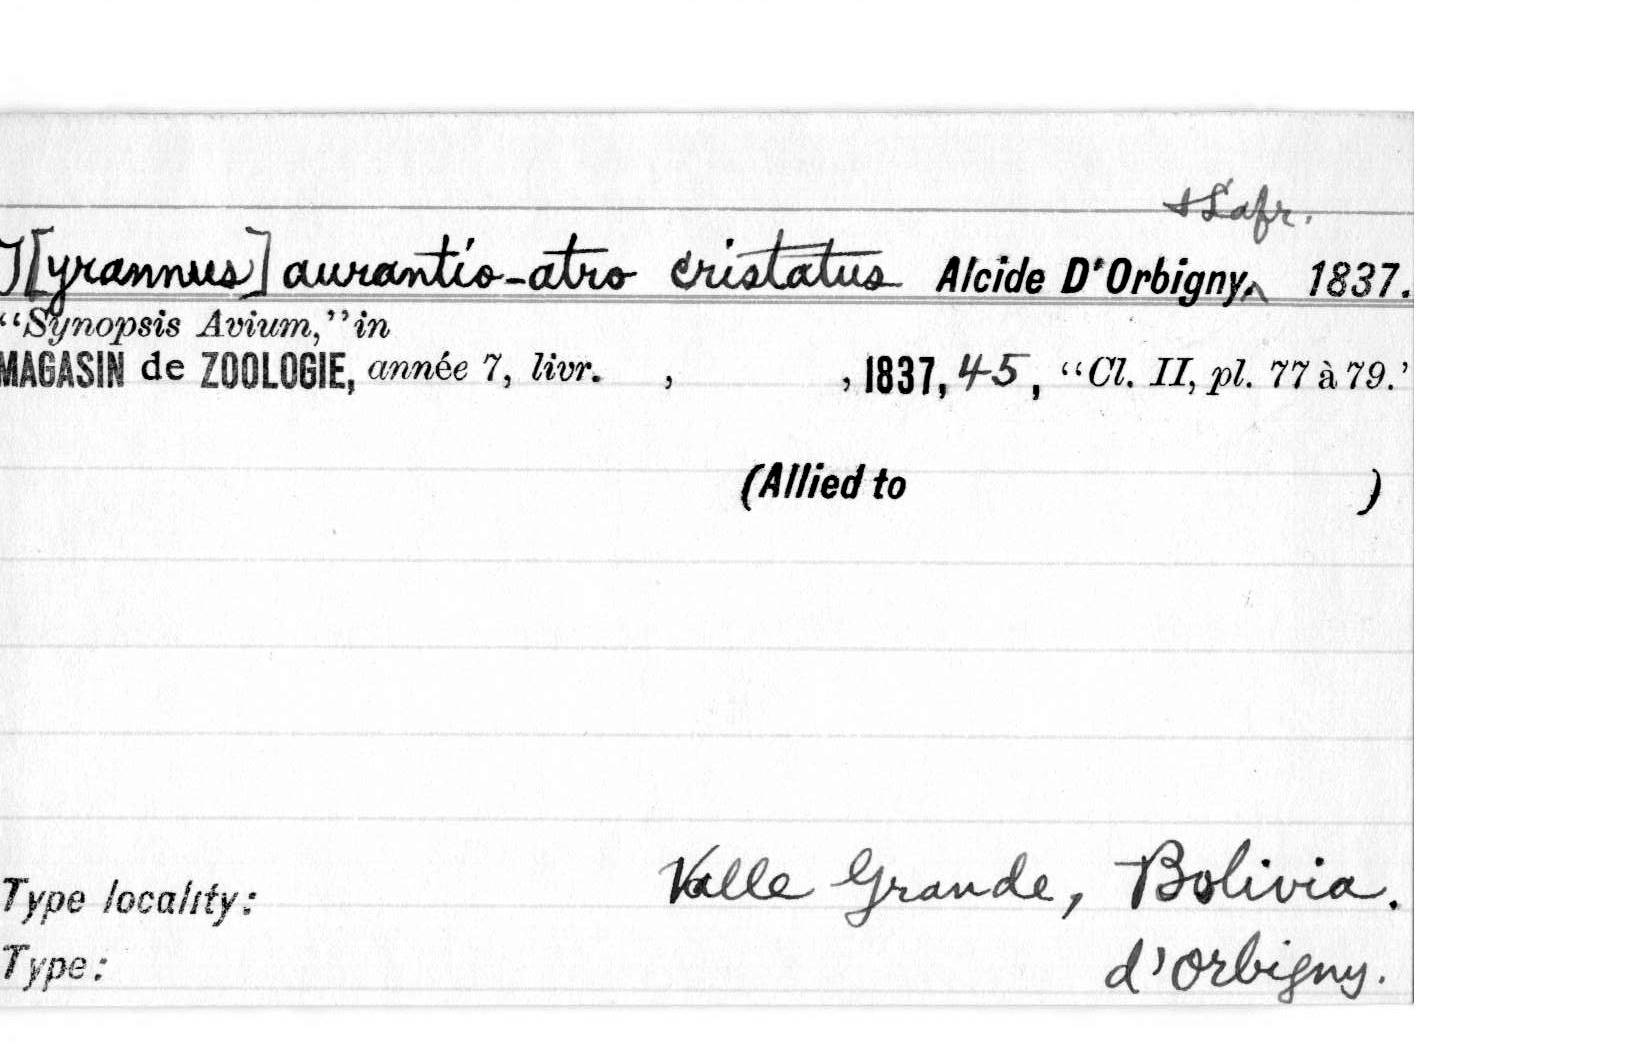 & Lafr.
T[yrannus] aurantio-atro cristatus Alcide D'Orbigny^ 1837.
"Synopsis Avium," in
MAGASIN de ZOOLOGIE, année 7, livr. , , 1837, 45, "Cl. II, pl. 77 à 79.'
(Allied to )
Type locality: Valle Grande, Bolivia.
Type: d'Orbigny.